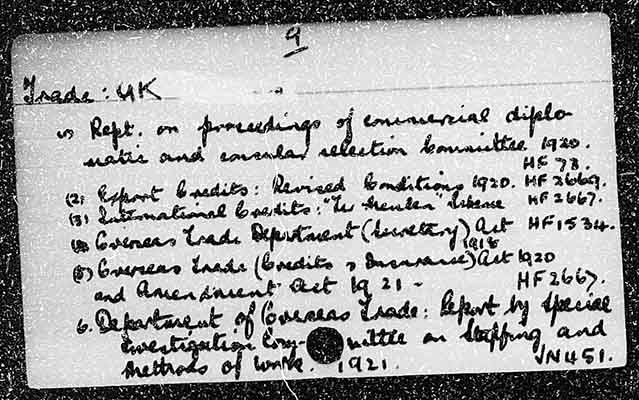 9
Trade: UK
(1) Rept. on proceedings of commercial diplo-
matic and consular selection Committee 1920.
HF 73.
(2) Export Credits: Revised Conditions 1920. HF 2669.
(3) International Credits: "Ter Meulen" Scheme HF 2667.
(4) Overseas Trade Department (Secretary) Act HF 1534.
1918
(5) Overseas Trade (Credits & Insurance) Act 1920
and Amendment Act 1921 - HF 2667.
6. Department of Overseas Trade: Report by Special
Investigation Com- mittee on Staffing and
Methods of Work. 1921. JN451.